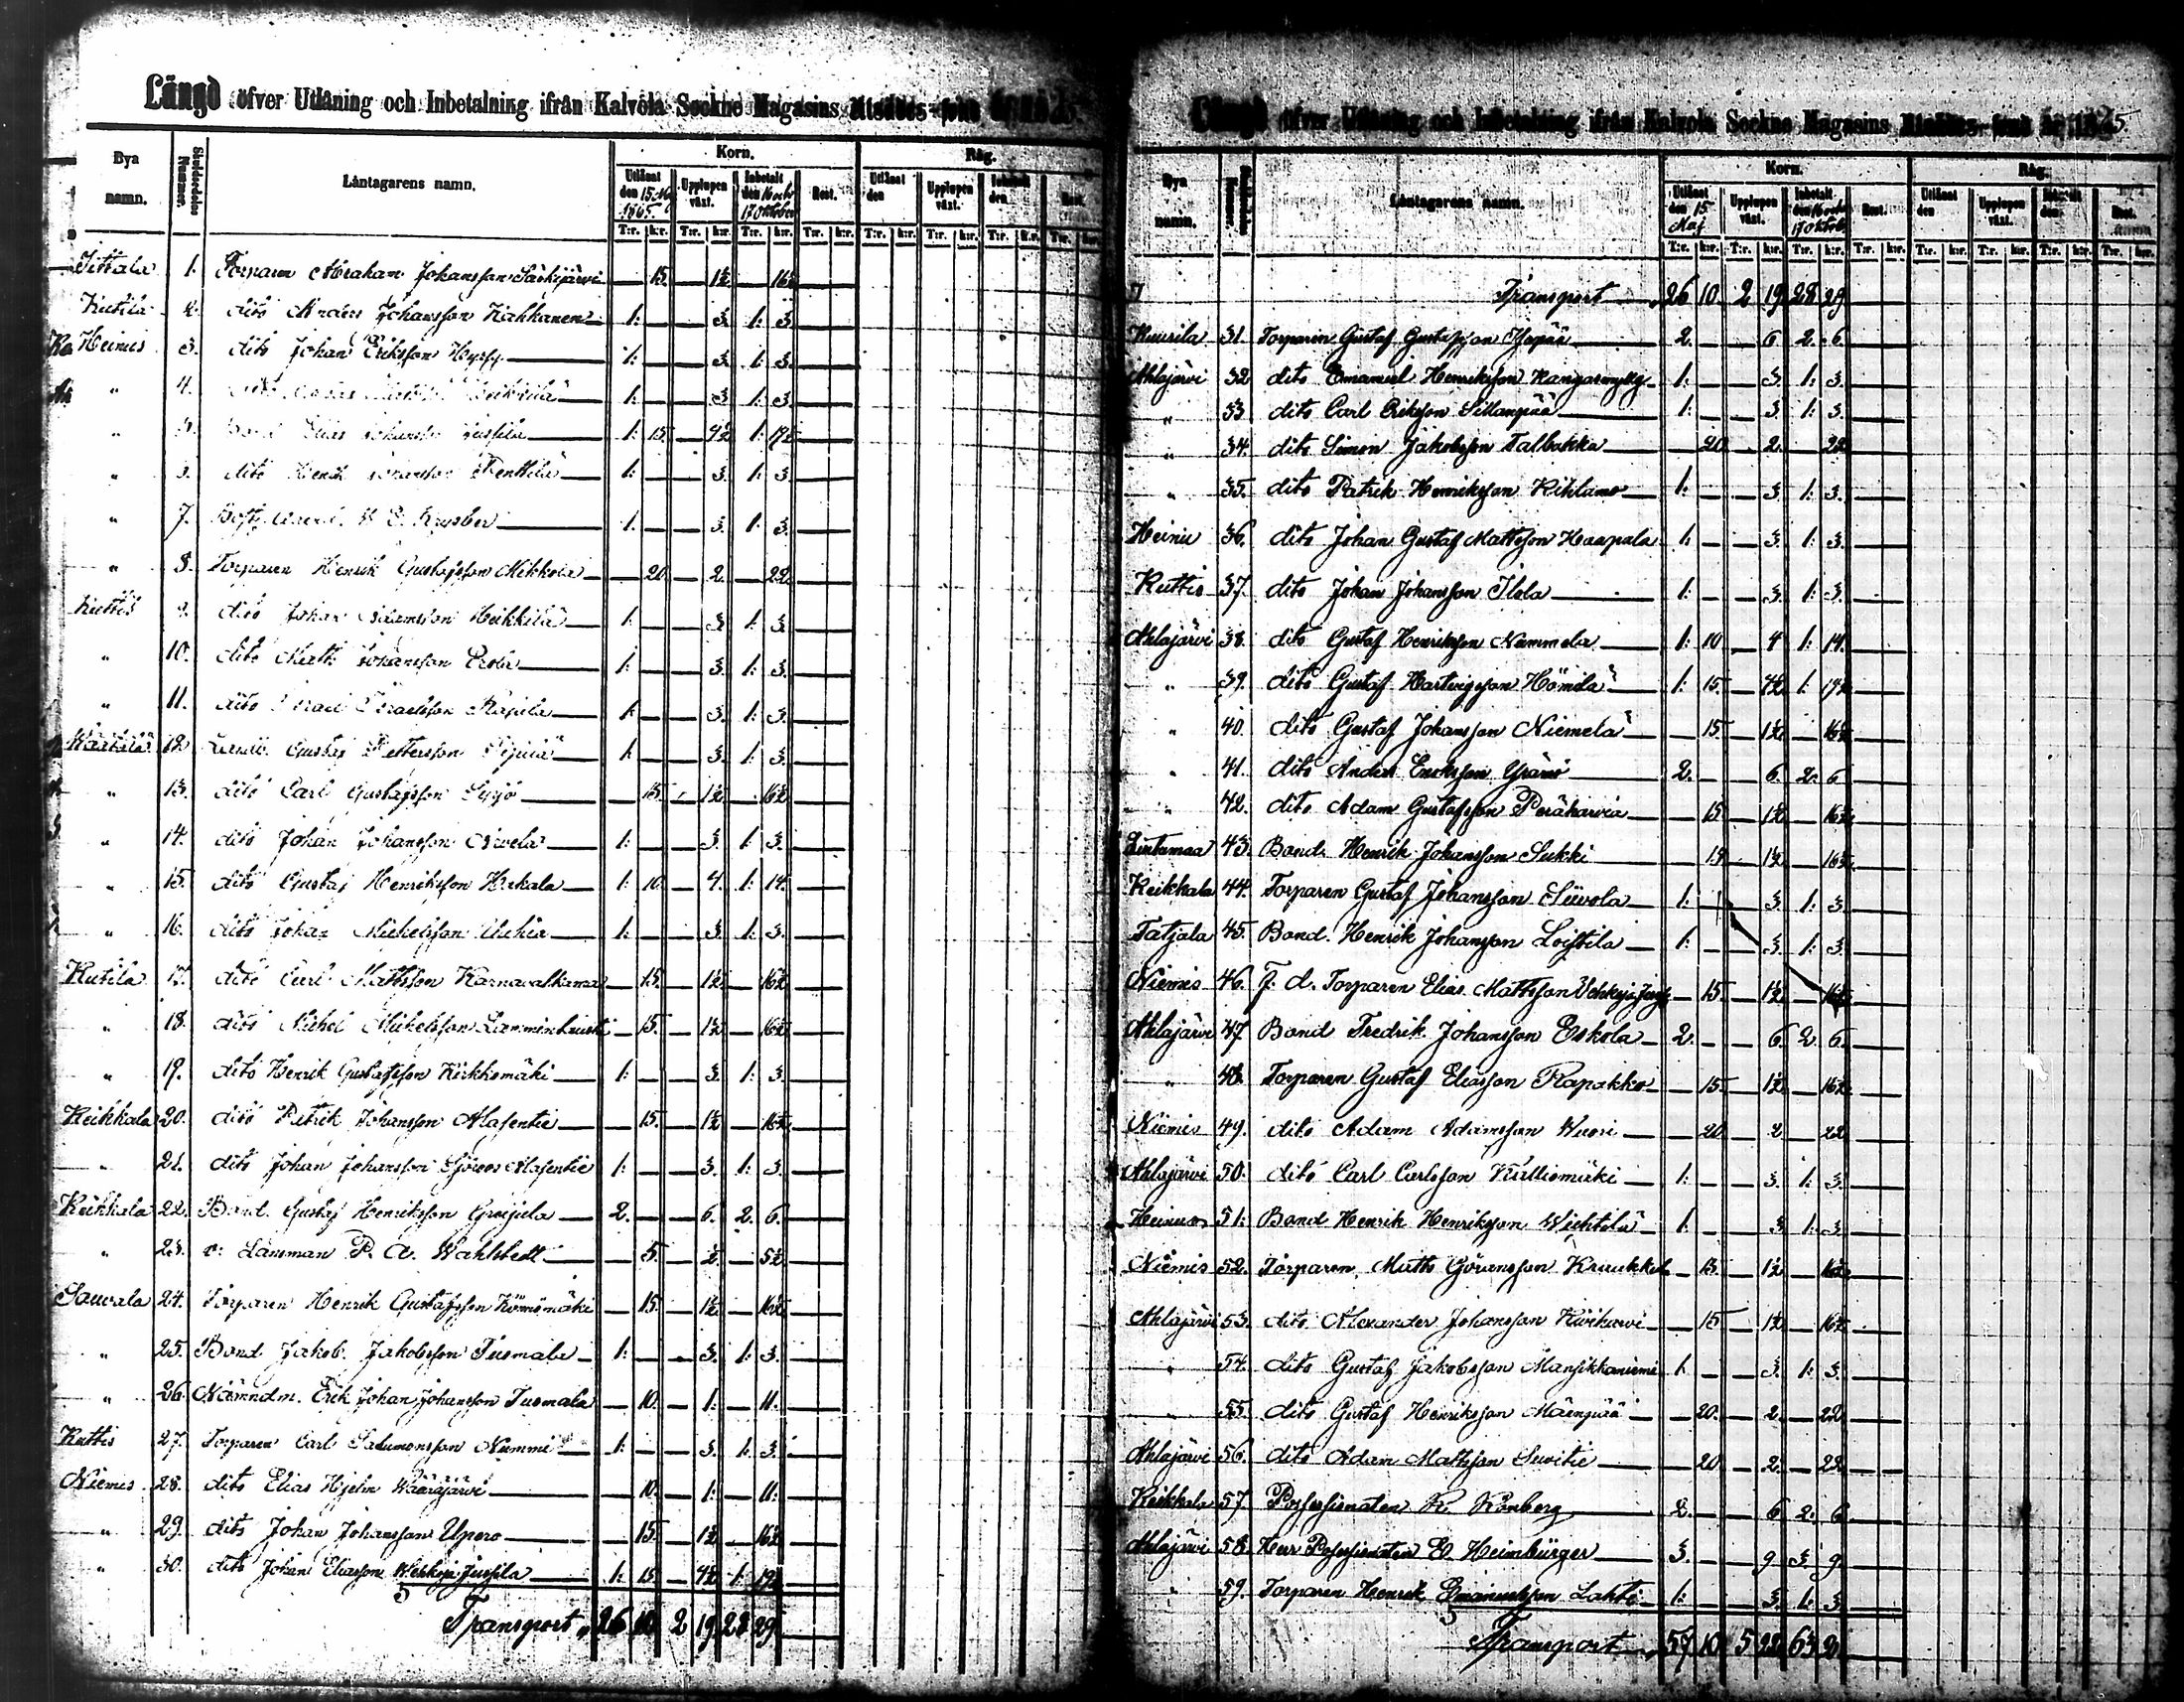 Längd öfver Utlåning och Inbetalning ifrån Kalvola Sockne Magasins
Bya namn. Skuldsedelns Nummer. Låntagarens namn. Korn. Råg.
Utlånt den 15 Maj 1865. Upplupen växt. Inbetalt den 16 och 17 Oktober Rest. Utlånt den Upplupen växt. Inbetalt den Rest.
T:r. k:r. T:r. k:r. T:r. k:r. T:r. k:r. T:r. k:r. T:r. k:r. T:r. k:r. T:r. k:r.
Iittala 1. Torparen Abraham Johansson Särkijärvi — 15. — 1½ — 16½
Kutila 2. dito Anders Johansson Kahkanen 1. — — 3. 1. 3.
Heinus 3. dito Johan Eriksson Hyrsy 1. — — 3. 1. 3.
" 4. dito Heikkilä 1. — — 3. 1. 3.
" 5. Bond Elias Johansson Jussila 1. 15. — 4½ 1. 19½
" dito Henrik Johansson Penttilä 1. — — 3. 1. 3.
" 7. 1. — — 3. 1. 3.
" 8. Torparen Henrik Gustafsson Mikkola — 20. — 2. — 22.
Kuttis 9. dito Johan Adamsson Heikkilä 1. — — 3. 1. 3.
" 10. dito Matts Johansson Erola 1. — — 3. 1. 3.
" 11. dito 1. — — 3. 1. 3.
12. Gustaf Pettersson 1. — — 3. 1. 3.
" 13. dito Carl Gustafsson — 15. — 1½ — 16½
" 14. dito Johan Johansson Arvela 1. — — 3. 1. 3.
" 15. dito Gustaf Henriksson Hakala 1. 10. — 4. 1. 14.
" 16. dito Johan Mickelsson 1. — — 3. 1. 3.
Kutila 17. dito Carl Mattsson — 15. — 1½ — 16½
" 18. dito Mickel Mickelsson — 15. — 1½ — 16½
" 19. dito Henrik Gustafsson Kirkkomäki 1. — — 3. 1. 3.
Keikkala 20. dito Patrik Johansson Alasentie — 15. — 1½ — 16½
" 21. dito Johan Johansson Alasentie 1. — — 3. 1. 3.
Keikkala 22. Bond. Gustaf Henriksson Greijula 2. — — 6. 2. 6.
" 23. v: Länsman P. A. Wahlstedt — 5. — ½ — 5½
Sauvala 24. Torparen Henrik Gustafsson — 15. — 1½ — 16½
" 25. Bond Jakob Jakobsson Tusmala 1. — — 3. 1. 3.
" 26. Nämndm. Erik Johan Johansson Tusmala — 10. — 1. — 11.
Kuttis 27. Torparen Carl Salumonsson Nummi 1. — — 3. 1. 3.
Niemis 28. dito Elias Hjelm Wääräjärvi — 10. — 1. — 11.
" 29. dito Johan Johansson Upero — 15. — 1½ — 16½
" 30. dito Johan Eliasson Wehkoja Jussila 1. 15. — 4½ 1. 19½
Transport 26 10 2 19 28 29
Längd öfver Utlåning och Inbetalning ifrån Kalvola Sockne Magasins
Bya namn. Låntagarens namn. Korn. Råg.
Utlånt den 15 Maj Upplupen växt. Inbetalt den 16 och 17 Oktob. Rest. Utlånt den Upplupen växt. Inbetalt den Rest.
T:r. k:r. T:r. k:r. T:r. k:r. T:r. k:r. T:r. k:r. T:r. k:r. T:r. k:r. T:r. k:r.
Transport 26 10 2 19 28 29
Kuurila 31. Torparen Gustaf Gustafsson 2. — — 6. 2. 6.
Ahlajärvi 32. dito Emanuel Henriksson Kangasmylly 1. — — 3. 1. 3.
" 33 dito Carl Eriksson Sillanpää 1. — — 3. 1. 3.
" 34. dito Simon Jakobsson Talbakka — 20 — 2. — 22.
" 35. dito Patrik Henriksson Kihlamo 1. — — 3. 1. 3.
Heinu 36. dito Johan Gustaf Mattsson Haapala 1. — — 3. 1. 3.
Kuttis 37. dito Johan Johansson Ilola 1. — — 3. 1. 3.
Ahlajärvi 38. dito Gustaf Henriksson Nummela 1. 10 — 4 1. 14.
" 39. dito Gustaf Hartvigsson 1. 15. — 4½ 1. 19½
" 40. dito Gustaf Johansson Niemelä — 15 — 1½ — 16½
" 41. dito Anders Eriksson 2. — — 6. 2. 6
" 42. dito Adam Gustafsson Peräharvia — 15 — 1½ — 16½
Lintumaa 43. Bond. Henrik Johansson Sukki — 15 — 1½ — 16½
Keikkala 44. Torparen Gustaf Johansson Siivola 1. — — 3. 1. 3.
Tatjala 45. Bond. Henrik Johansson Loistila 1. — — 3. 1. 3.
Niemis 46. F. d. Torparen Elias Mattsson — 15. — 1½ — 16½
Ahlajärvi 47 Bond Fredrik Johansson Eskola 2. — — 6. 2. 6.
" 48. Torparen Gustaf Eliasson Rapakko — 15 — 1½ — 16½
Niemis 49. dito Adam Adamsson Wuori — 20 — 2 — 22
Ahlajärvi 50. dito Carl Carlsson Kalliomäki 1. — — 3. 1. 3.
Heinus 51. Bond Henrik Henriksson Wichtilä 1. — — 3 1. 3
Niemis 52. Torparen Matts Göransson — 15. — 1½ — 16½
Ahlajärvi 53. dito Alexander Johansson — 15 — 1½ — 16½
" 54. dito Gustaf Jakobsson Mansikkaniemi 1. — — 3. 1. 3.
" 55. dito Gustaf Henriksson Mäenpää — 20. — 2. — 22
Ahlajärvi 56. dito Adam Mattsson Suvitie — 20 — 2. — 22
Keikkala 57. Possessionaten K. Rönberg 2. — — 6 2. 6.
Ahlajärvi 58. Herr Possessionaten E. Heimbürger 3. — — 9 3 9
" 59. Torparen Henrik Emanuelsson Lahti 1. — — 3. 1. 3
Transport 57 10 5 22 63 2